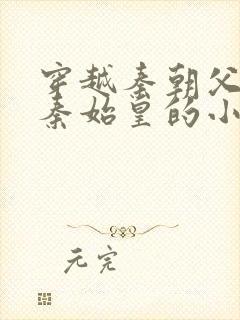 穿越秦朝父
秦始皇的小
元完